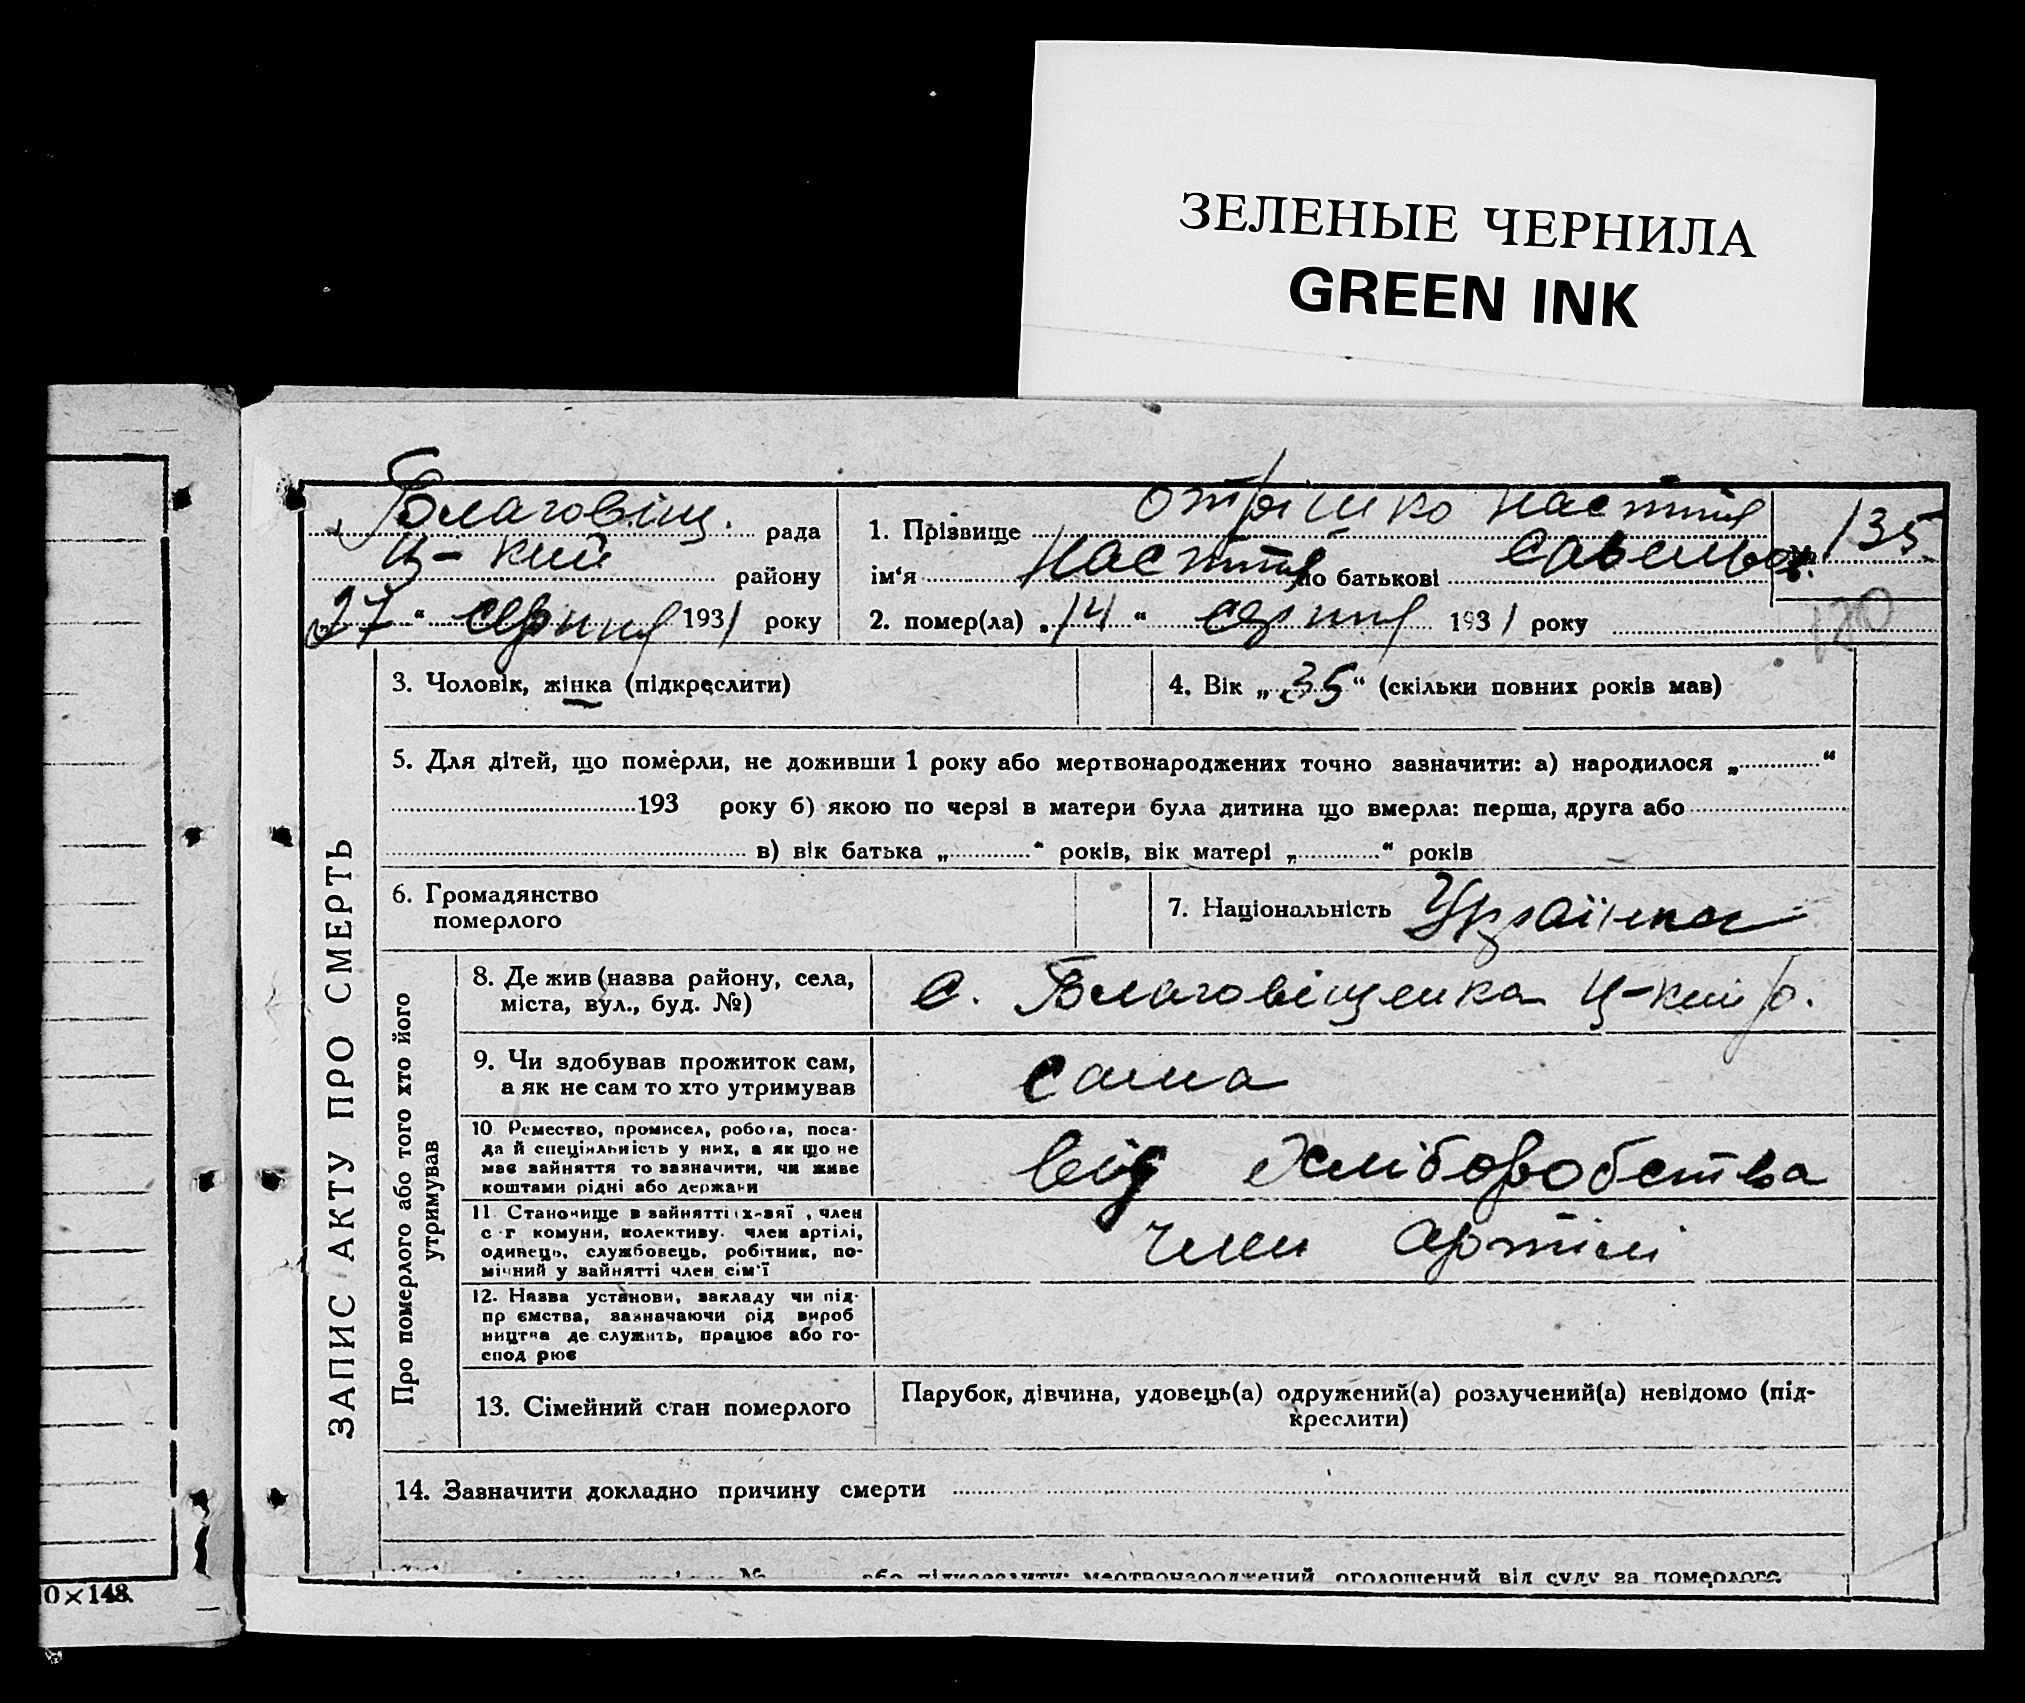 ЗЕЛЕНЫЕ ЧЕРНИЛА
GREEN INK
Благовіщ. рада
Ц-кий району
„27“ серпня 1931 року
1. Прізвище Отрішко Настя
ім‘я Настя по батькові Савельов.
2. помер(ла) „14“ серпня 1931 року
135
120
ЗАПИС АКТУ ПРО СМЕРТЬ
3. Чоловік, жінка (підкреслити)
4. Вік „35“ (скільки повних років мав)
5. Для дітей, що померли, не доживши 1 року або мертвонароджених точно зазначити: а) народилося „ “
193 року б) якою по черзі в матери була дитина що вмерла: перша, друга або
в) вік батька „ “ років, вік матері „ “ років
6. Громадянство
померлого
7. Національність Українка
Про померлого або того хто його
утримував
8. Де жив (назва району, села,
міста, вул., буд. №)
с. Благовіщенка Ц-кий р.
9. Чи здобував прожиток сам,
а як не сам то хто утримував
сама
10 Ремество, промисел, робота, поса-
да й спеціяльність у них, а як що не
має зайняття то зазначити, чи живе
коштами рідні або держави
від хліборобства
11. Становище в зайнятті , член
с-г комуни, колективу. член артілі,
одинець, службовець, робітник, по-
мічний у зайнятті член сім'ї
член артілі
12. Назва установи, закладу чи під-
пр ємства, зазначаючи рід вироб
ництва де служить, працює або го-
спод рює
13. Сімейний стан померлого
Парубок, дівчина, удовець(а) одружений(а) розлучений(а) невідомо (під-
креслити)
14. Зазначити докладно причину смерти
№ або підкреслити: мертвонароджений, оголошений від суду за померлого.
0×148.